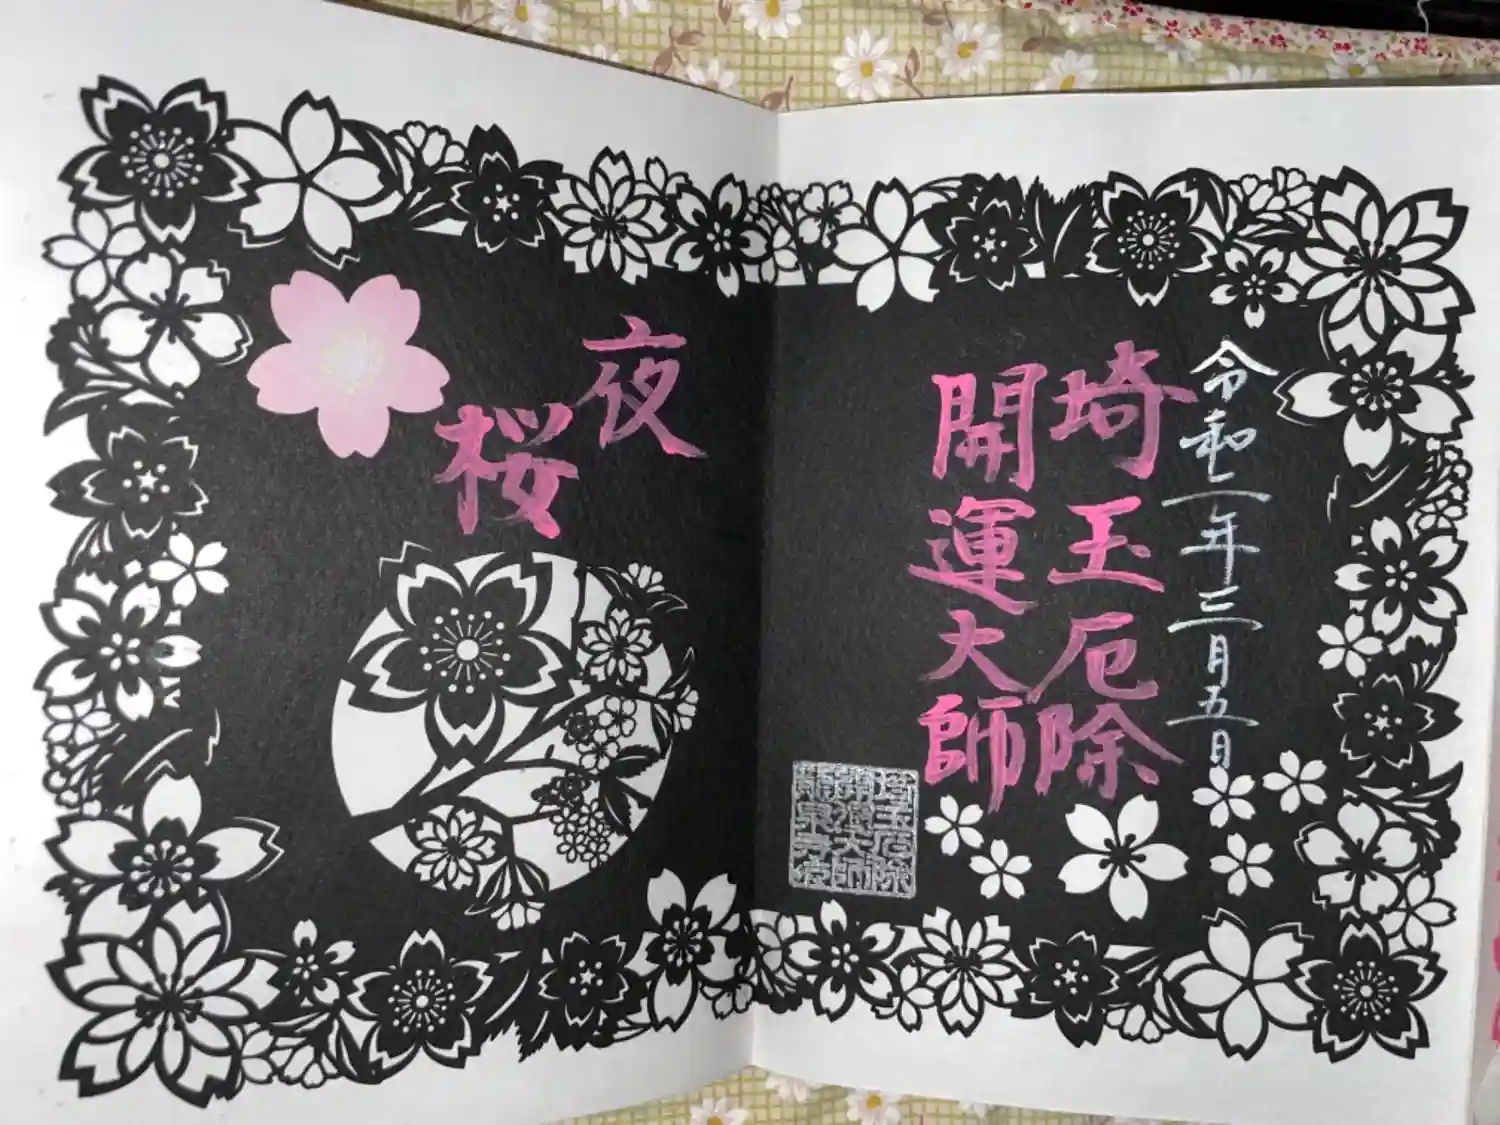 令和二年三月五日
埼玉厄除
開運大師
夜
桜
埼玉厄除
開運大師
龍泉寺